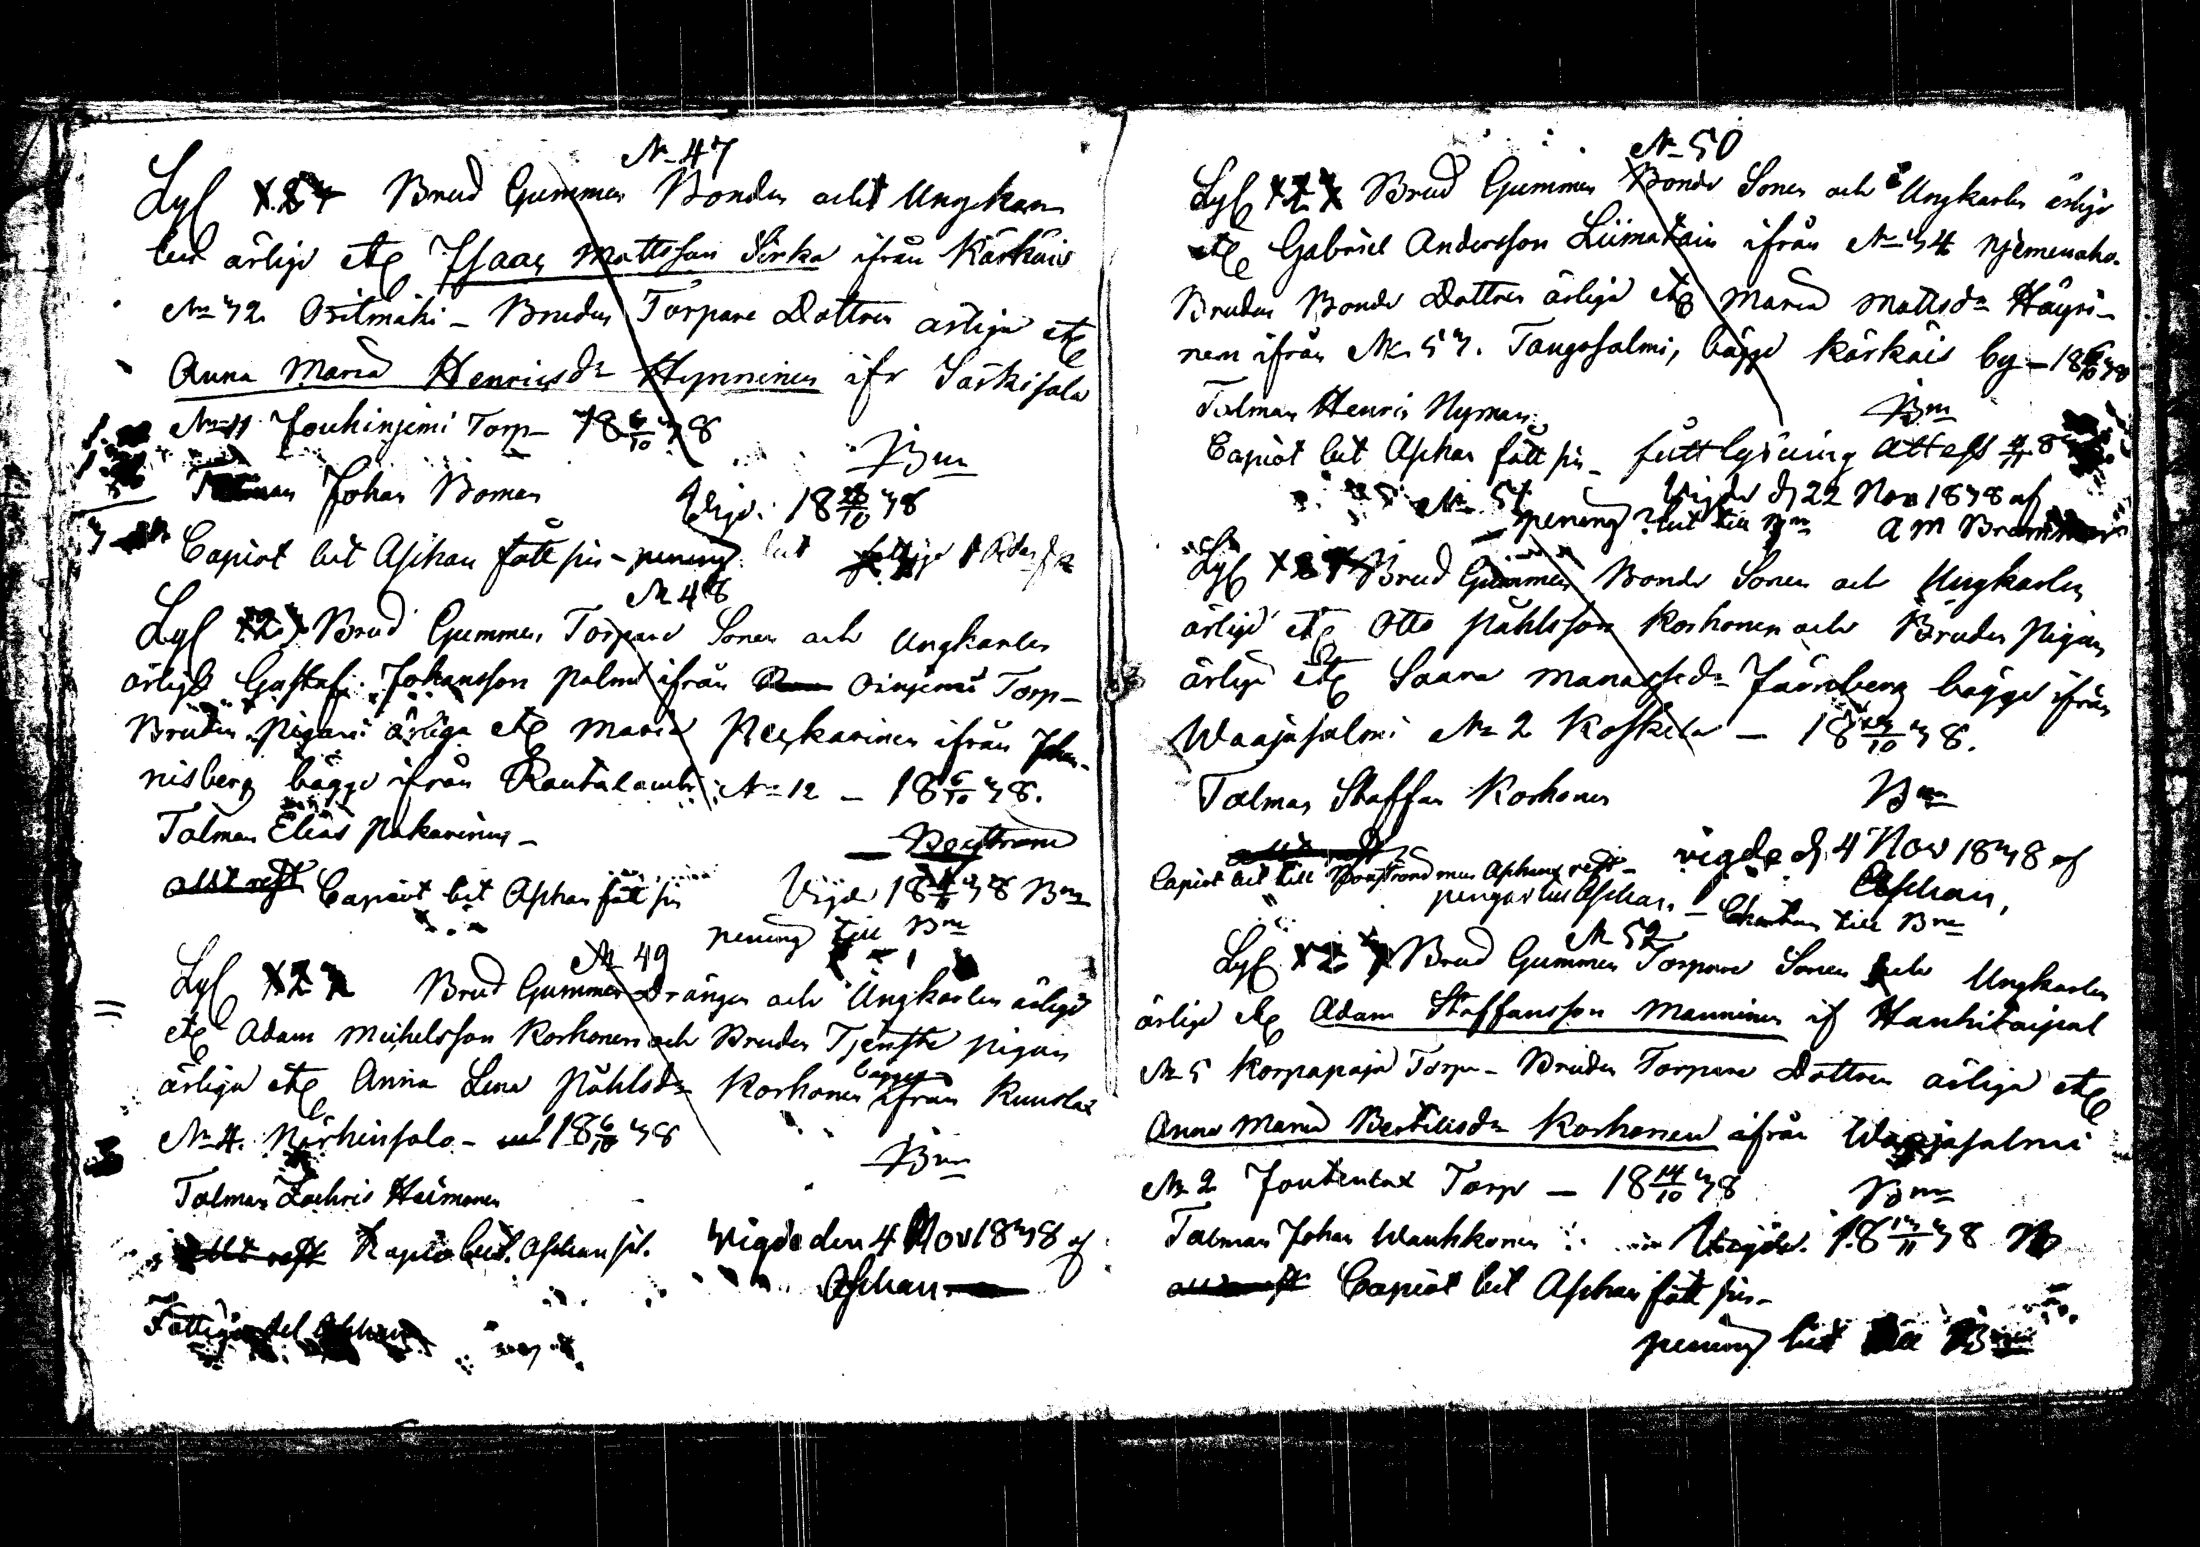 N 47
Lyf 1. 2. 3 Brud Gummen Bonden och Ungkar-
len ärlige etc Isaac Mattsson Sirka ifrån Kärkäis
No 72 Oritmäki - Bruden Torpare Dottren ärliga etc
Anna Maria Henricsdr Hynninen ifr Särkisalo
No 11 Jouhinjemi Torp - 18 6/10 78
Bm
Talman Johan Boman
Vigde 18 /10 78
Capiot lut Aschan fått sin - penning lut
N 48
Lyf 1. 2. 3 Brud Gummen Torpare Sonen och Ungkarlen
ärlige Gustaf Johansson Palm ifrån Oinjemi Torp -
Bruden Pigan ärliga etc Maria Peckarinen ifrån Johan-
nisberg bägge ifrån Rautalambi No 12 - 18 6/10 78.
Talman Elias Pakarinen -
Boxström
allt rest Capiot lut Aschan fått sin
Vigde 18 /11 78 Bm
penning till Bm
N 49
Lyf 1 2 3 Brud Gummen Drängen och Ungkarlen ärlige
etc Adam Michelsson Korhonen och Bruden Tjenste pigan
ärliga etc Anna Lena Påhlsdr Korhonen bägge ifrån Kuuslax
No 4. Närhinsalo - 18 6/10 78
Bm
Talman Zachris Heimonen
allt rest Kapiot lut. Aschan sit.
Vigde den 4 Nov 1878 af
Aschan
Fattiga del Aschan
N 50
Lyf 1 2 3 Brud Gummen Bonde Sonen och Ungkarlen ärlige
etc Gabriel Andersson Liimatain ifrån No 34 Njemenaho.
Bruden Bonde Dottren ärliga etc Maria Mattsdr Häyri-
nen ifrån No 57. Tangosalmi, bägge Kärkäis by - 18 6/10 78
Talman Henric Nyman
Bm
Capiot lut Aschan fått sin - fått lysning attest
Vigde d 22 Nov 1878 af
N 51
penning lut till Bm
A M
Lyf 1 2 3 Brud Gummen Bonde Sonen och Ungkarlen
ärlige etc Otto Påhlsson Korhonen och Bruden Pigan
ärliga etc Saara Manassedr Järnberg bägge ifrån
Waajasalmi No 2 Koskela - 18 /10 78.
Talman Staffan Korhonen
Bm
vigde d 4 Nov 1878 af
Aschan,
Capiot lut till Boxström men Aschan rest -
pengar lut Aschan. - till Bm
N 52
Lyf 1 2 3 Brud Gummen Torpare Sonen och Ungkarlen
ärlige etc Adam Staffansson Manninen if Hankitaipal
No 5 Korpapaja Torp - Bruden Torpare Dottren ärliga etc
Anna Maria Bertilsdr Korhonen ifrån Waajasalmi
No 2 Joutenlax Torp - 18 14/10 78
Bm
Talman Johan Wauhkonen
Vigde. 18 17/11 78
Capiot lut Aschan fått sin -
penning lut till Bm